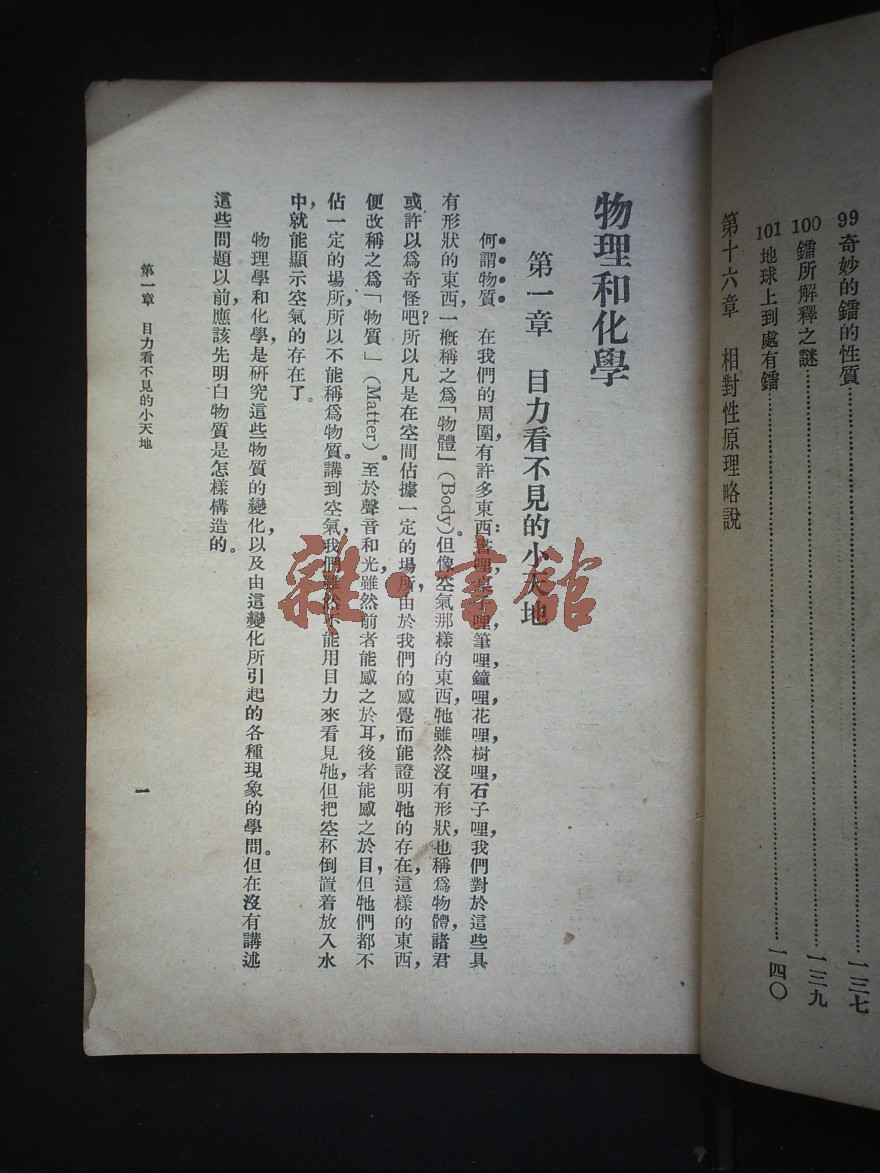 99奇妙的鐳的性質……一三七
100鐳所解釋之謎……一三九
101地球上到處有鐳……一四〇
第十六章 相對性原理略說
物理和化學
第一章 目力看不見的小天地
何謂物質 在我們的周圍有許多東西：書哩，桌子哩，筆哩，鐘哩，花哩，樹哩，石子哩，我們對於這些具
有形狀的東西，一概稱之爲「物體」(Body)。但像空氣那樣的東西，牠雖然沒有形狀，也稱爲物體，諸君
或許以爲奇怪吧？所以凡是在空間佔據一定的場所，由於我們的感覺而能證明牠的存在，這樣的東西，
便改稱之爲「物質」(Matter)。至於聲音和光，雖然前者能感之於耳，後者能感之於目，但牠們都不
佔一定的場所，所以不能稱爲物質。講到空氣，我們雖然不能用目力來看見牠，但把空杯倒置着放入水
中，就能顯示空氣的存在了。
物理學和化學，是研究這些物質的變化，以及由這變化所引起的各種現象的學問。但在沒有講述
這些問題以前，應該先明白物質是怎樣構造的。
第一章 目力看不見的小天地
一
雜·書館